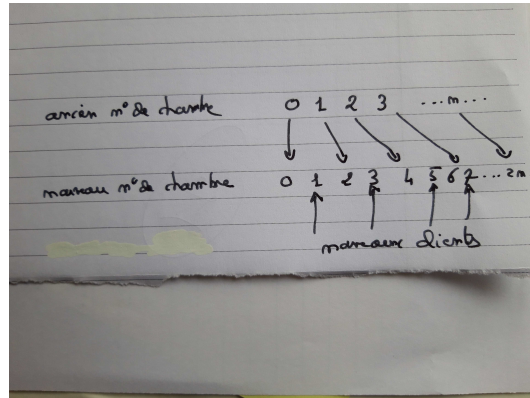 ancien n° de chambre 0 1 2 3 ...n...
nouveau n° de chambre 0 1 2 3 4 5 6 7 ... 2n
nouveaux clients